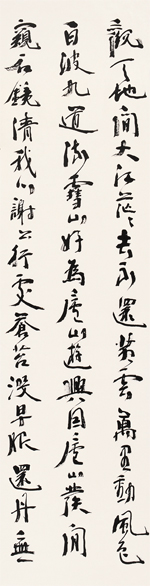 觀天地間大江茫々去不還黃雲萬里動風色
白波九道流雪山好為廬山謠興因廬山發閒
窺石鏡清我心謝公行處蒼苔沒早服還丹無